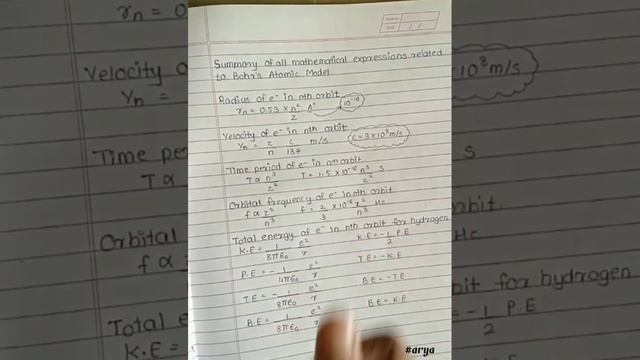 Summary of all mathematical expressions related
to Bohr's Atomic Model.
Radius of e- in nth orbit
rn = 0.53 × n²/z A° 10⁻¹⁰
Velocity of e- in nth orbit
Vn = z/n c/137 m/s C = 3×10⁸m/s
Time period of e- in nth orbit
T ∝ n³/z² T = 1.5 × 10⁻¹⁶ n³/z² S
Orbital frequency of e- in nth orbit
f ∝ z²/n³ f = 2/3 × 10¹⁶ z²/n³ Hc
Total energy of e- in nth orbit for hydrogen
K.E = 1/8πε₀ e²/r K.E = -1/2 P.E
P.E = - 1/4πε₀ e²/r T.E = -K.E
T.E = - 1/8πε₀ e²/r B.E = -T.E
B.E = 1/8πε₀ e² B.E = K.E
#arya